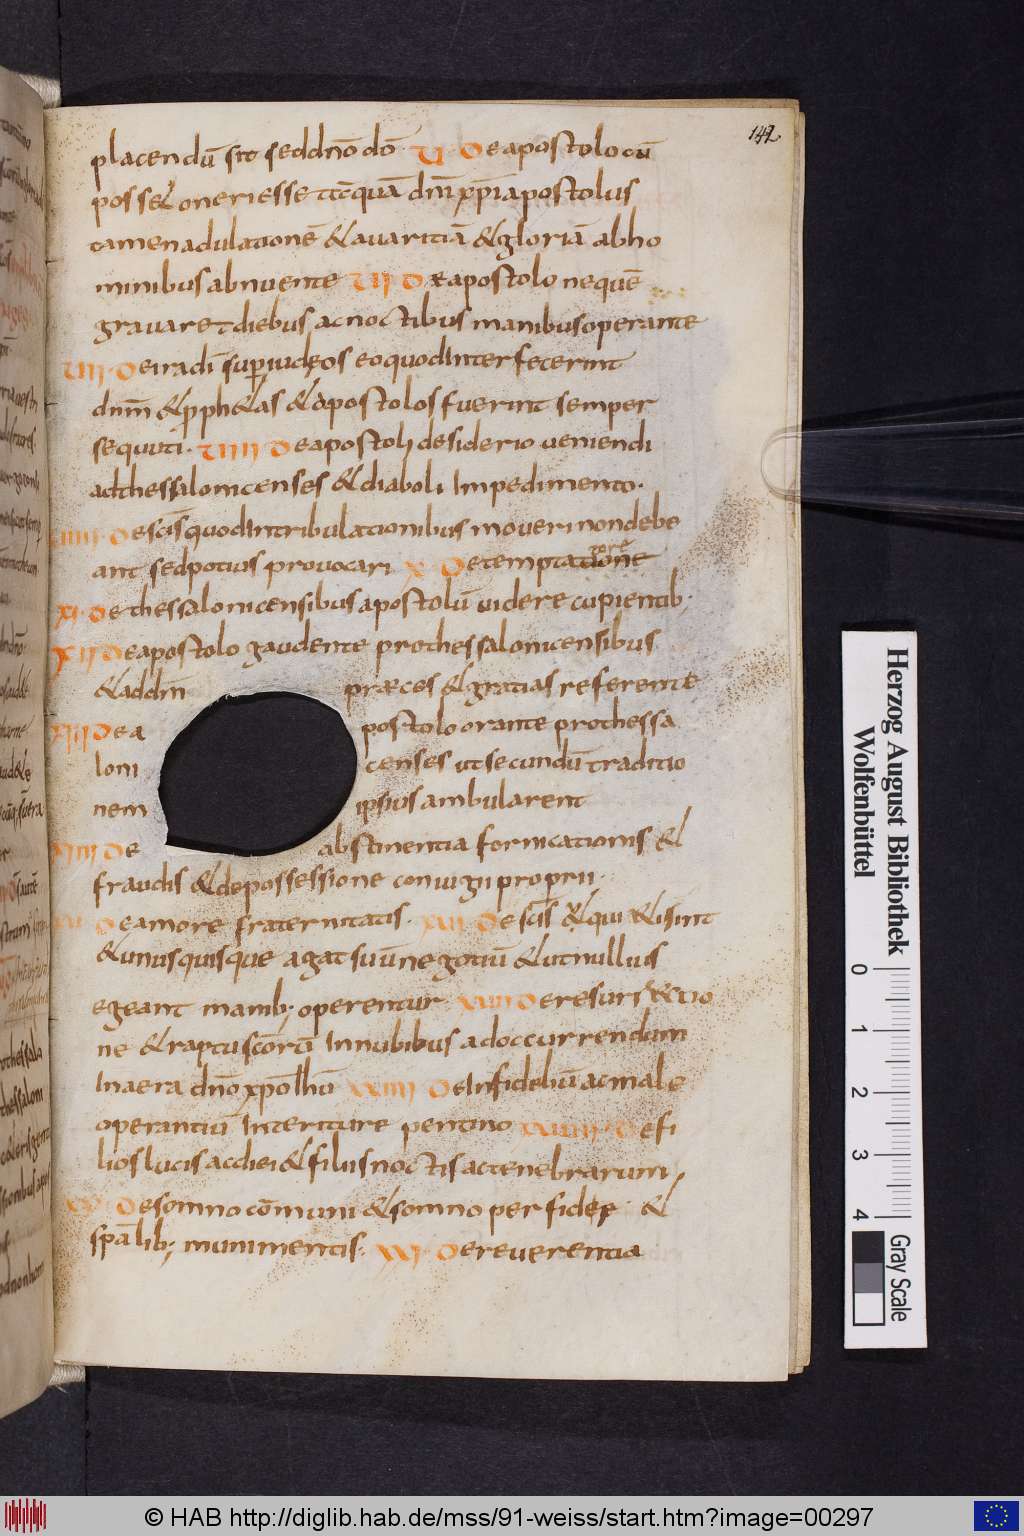 142
placendū sit sed dn̄o dō. VI. De apostolo cū
posset oneri esse tcēquā dn̄i xp̄i apostolus
tamen adulationē & avaritiā & gloriā ab ho
minibus abnuente VII De apostolo ne quē
gravaret diebus ac noctibus manibus operante
VIII. De ira dī sup iudęos eo quod Interfecerint
dn̄m & p̄ph&as & apostolos fuerint semper
sequuti. VIIII De apostoli desiderio veniendi
ad thessalonicenses & diaboli Impedimento.
De sc̄is quod In tribulationibus moveri non debe
ant sed potius provocari X De temptatione
XI. De thessalonicensibus apostolū videre cupientib;
XII De apostolo gaudente pro thessalonicensibus
& ad dm̄ præces & gratias referente
XIII De apostolo orante pro thessa
loni censes ut secundū traditio
nem ipsius ambularent
XIIII De abstinentia fornicationis &
fraudis & de possessione coniugii proprii.
De amore fraternitatis. De sc̄is ut qui &isint
& unusquisque agat suū negotiū & ut nullius
egeant manib; operentur De resurr&tio
ne & raptu sc̄orū In nubibus ad occurrendum
In aera dn̄o xp̄o ihū De Infideliū ac male
operantiū Interiture pentino De fi
lios lucis ac diei & filiis noctis ac tenebrarum
XX De somno cōmuni & somno per fidep &
sp̄alib; munimentis. XXI. De reverentia
Herzog August Bibliothek
Wolfenbüttel
0 1 2 3 4
Gray Scale
© HAB http://diglib.hab.de/mss/91-weiss/start.htm?image=00297